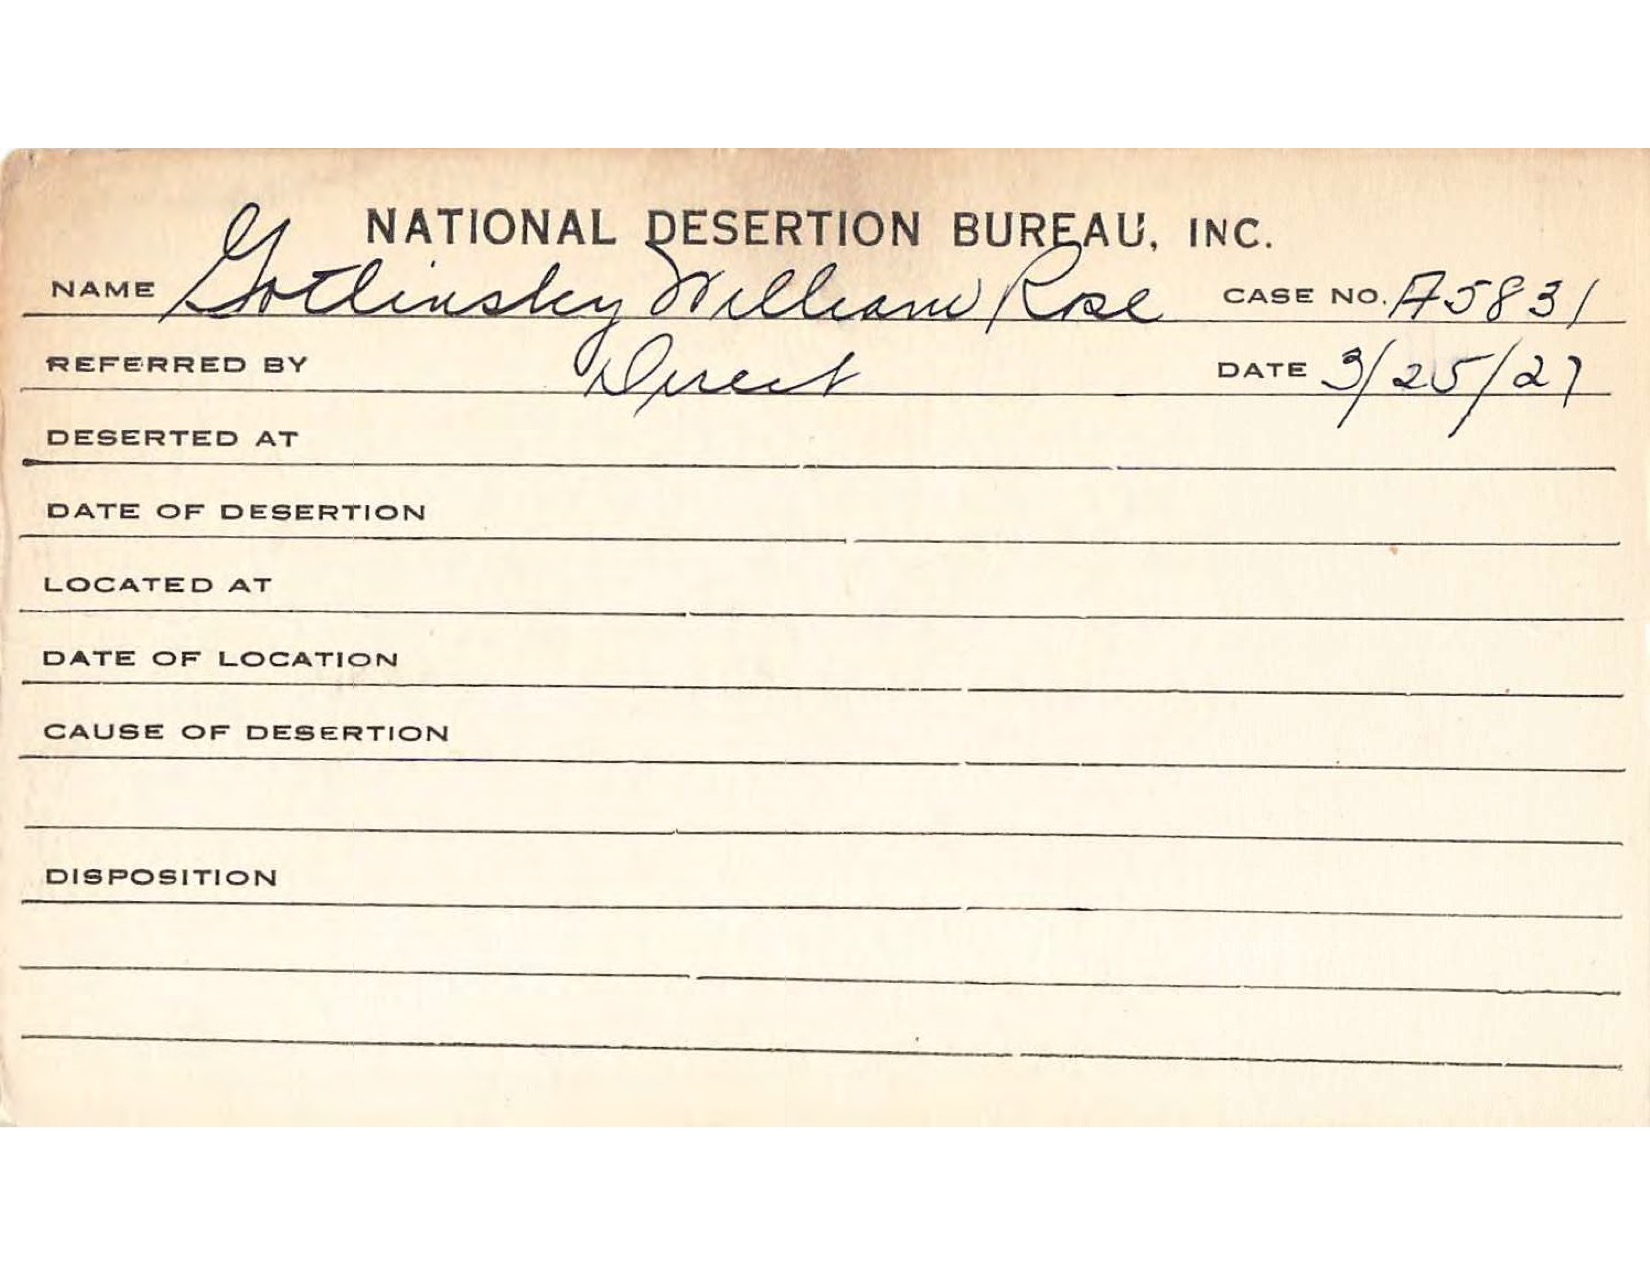 NATIONAL DESERTION BUREAU, INC.
NAME Gotlinsky William Rose CASE NO. A5831
REFERRED BY Direct DATE 3/25/27
DESERTED AT
DATE OF DESERTION
LOCATED AT
DATE OF LOCATION
CAUSE OF DESERTION
DISPOSITION